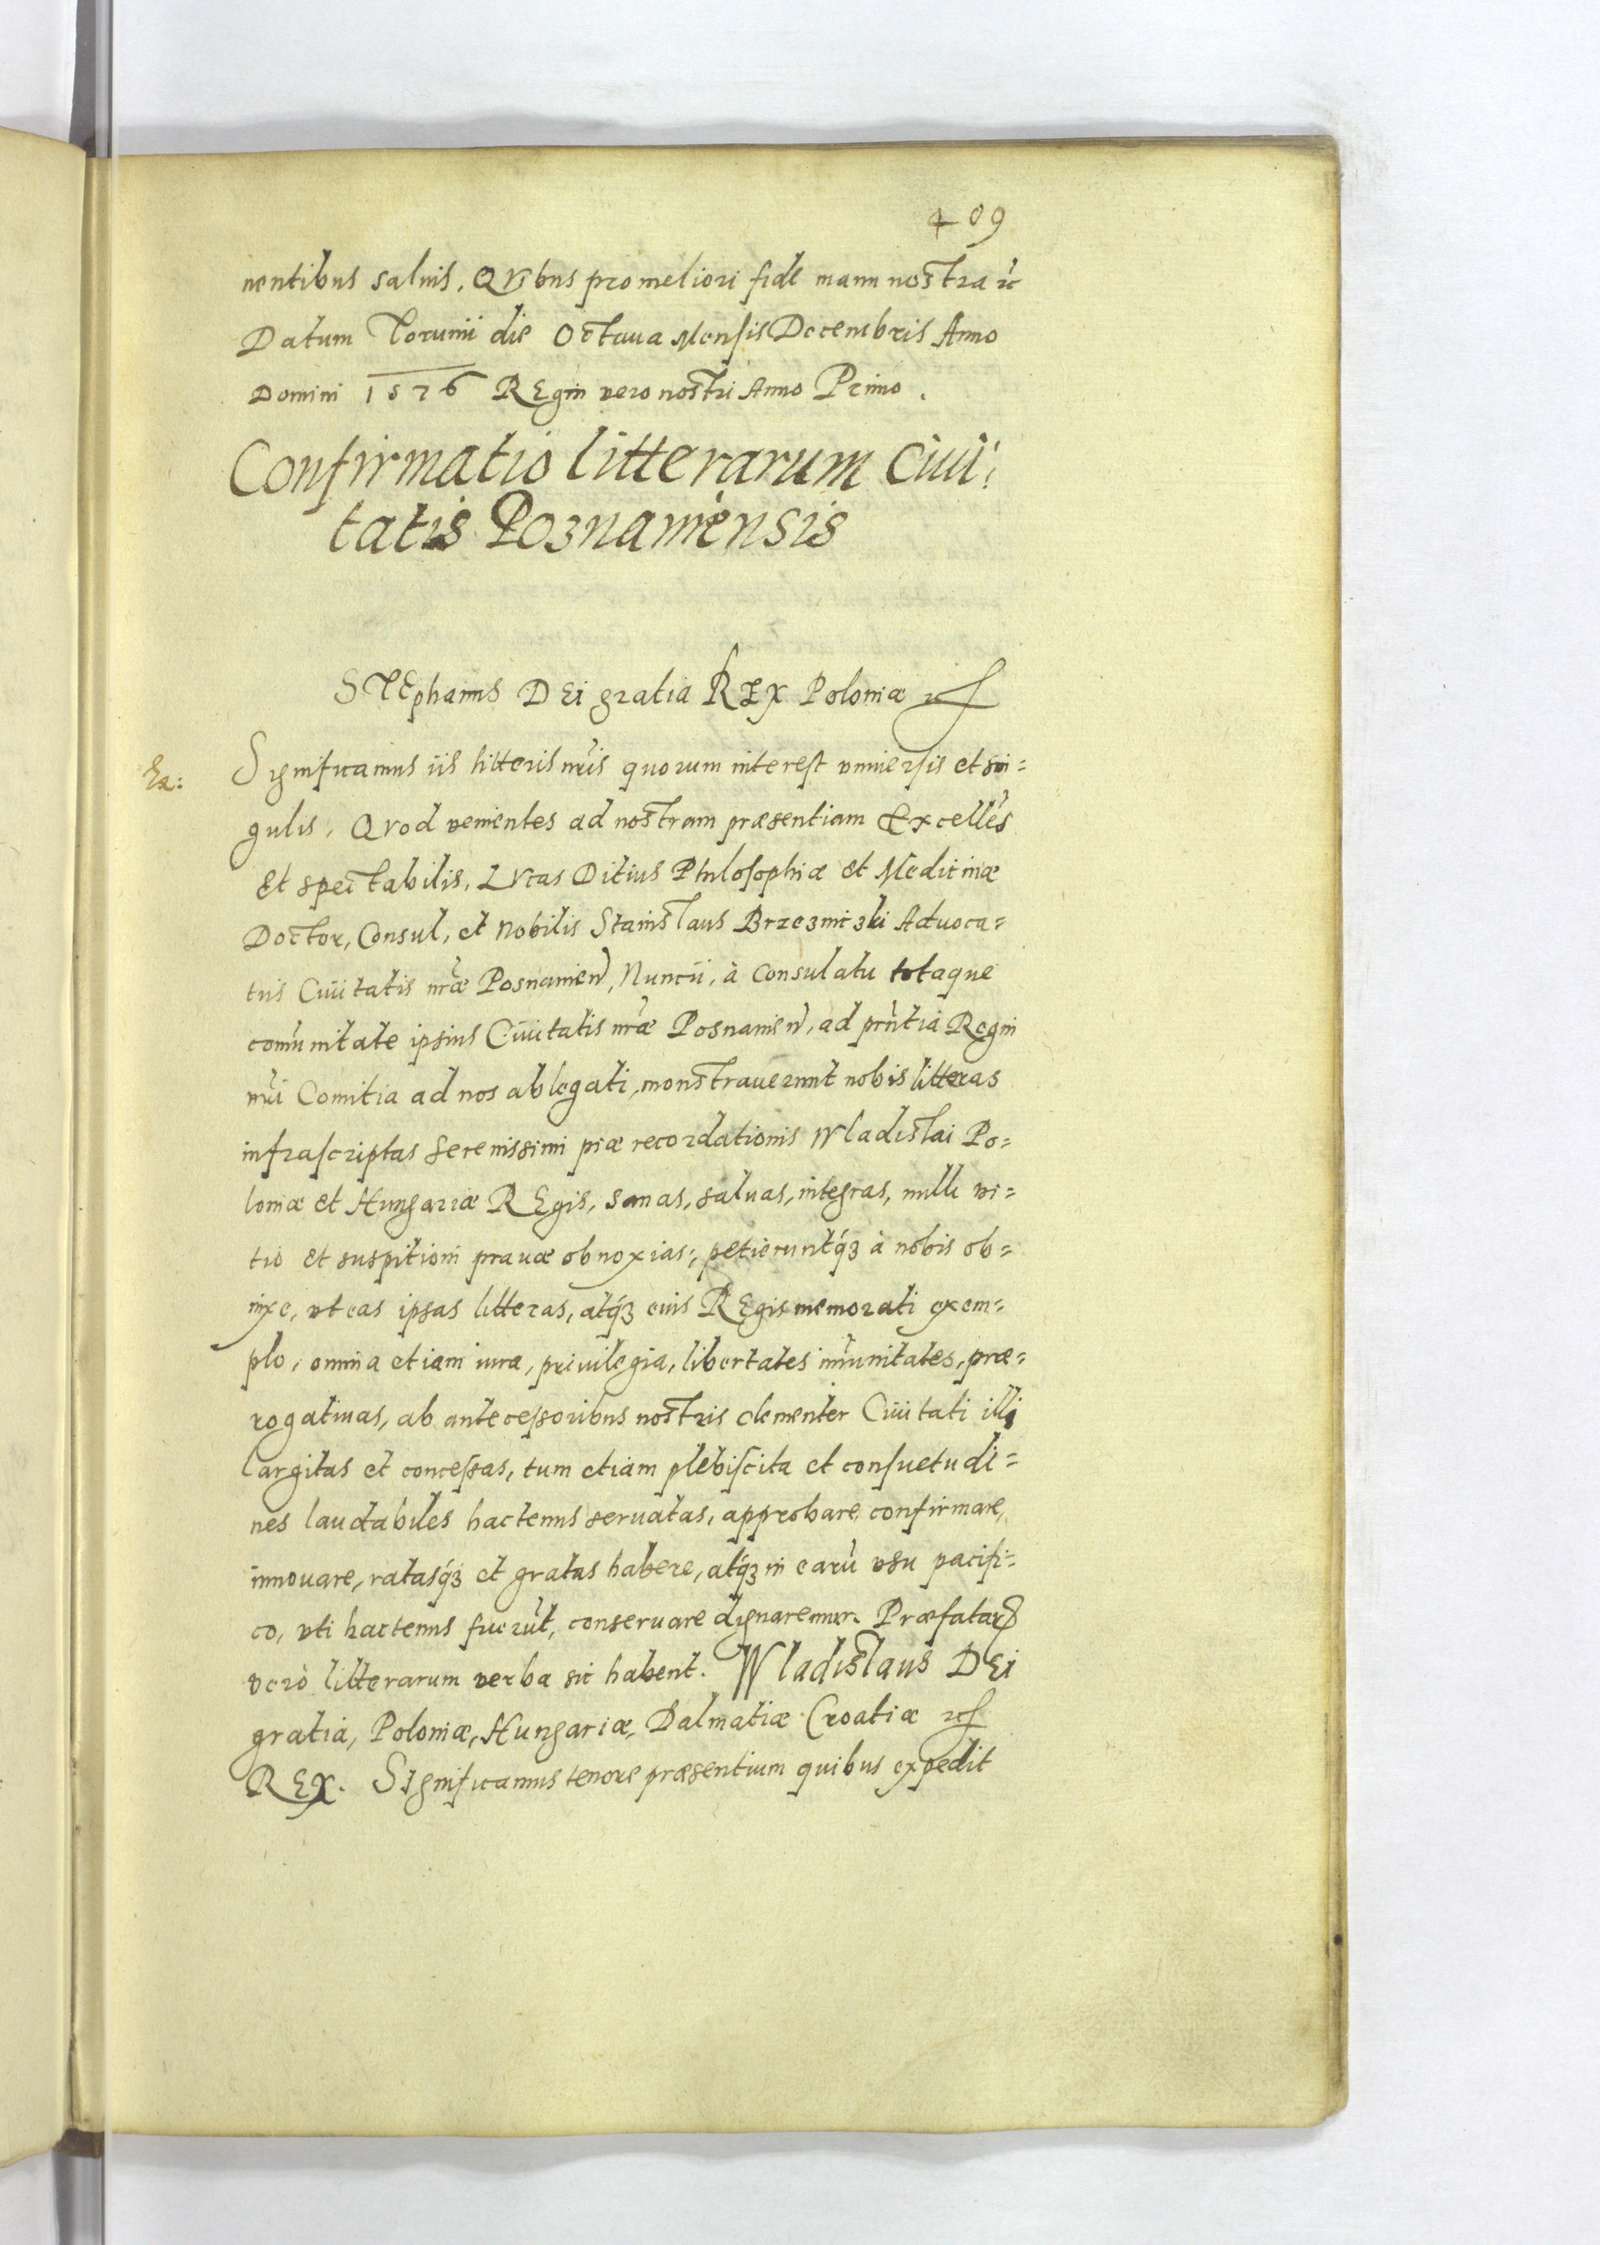 409
nentibus saluis. QVibus pro meliori fide manu nostra etc
Datum Torunii die Octaua Mensis Decembris Anno
Domini 1576 REgni vero nostri Anno Primo.
Confirmatio litterarum Ciui:
tatis Poznaniensis
STEphanus DEi gratia REX Poloniæ etc
Significamus iis litteris nr̃is quorum interest vniuersis et sin=
gulis. QVod venientes ad nostram præsentiam Excellẽs
et spectabilis, LVcas Ditius Philosophiæ et Medicinæ
Doctor, Consul, et Nobilis Stanislaus Brzezniczki Aduoca=
tus Ciuitatis nr̃æ Posnanien̄, Nuncii, à Consulatu totaque
com̃unitate ipsius Ciuitatis nr̃æ Posnanien̄, ad pr̃ntia Regni
nr̃i Comitia ad nos ablegati, monstrauerunt nobis litteras
infrascriptas serenissimi piæ recordationis Wladislai Po=
loniæ et Hungariæ REgis, sanas, saluas, integras, nulli vi=
tio et suspitioni prauæ obnoxias; petieruntq́ʒ à nobis ob=
nixe, vt eas ipsas litteras, atq́ʒ eius REgis memorati exem=
plo, omnia etiam iura, priuilegia, libertates im̃unitates, præ=
rogatiuas, ab antecessoribus nostris clementer Ciuitati illi
largitas et concessas, tum etiam plebiscita et consuetudi=
nes laudabiles hactenus seruatas, approbare, confirmare,
innouare, ratasq́ʒ et gratas habere, atq́ʒ in earũ vsu pacifi=
co, vti hactenus fuerũt, conseruare dignaremur. Præfatarꝝ
verò litterarum verba sic habent. Wladislaus DEi
gratia, Poloniæ, Hungariæ, Dalmatiæ Croatiæ etc
REX. SIgnificamus tenore præsentium quibus expedit